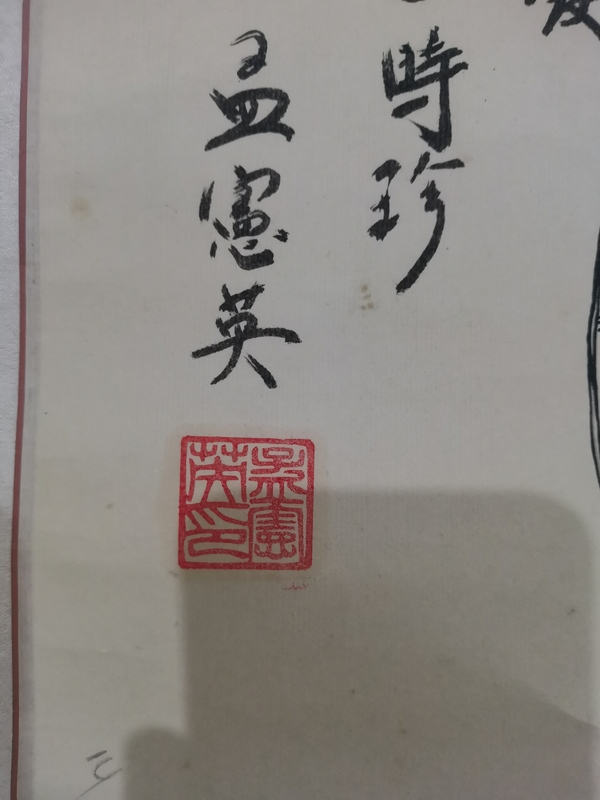 時珍
孟憲英
孟憲英印